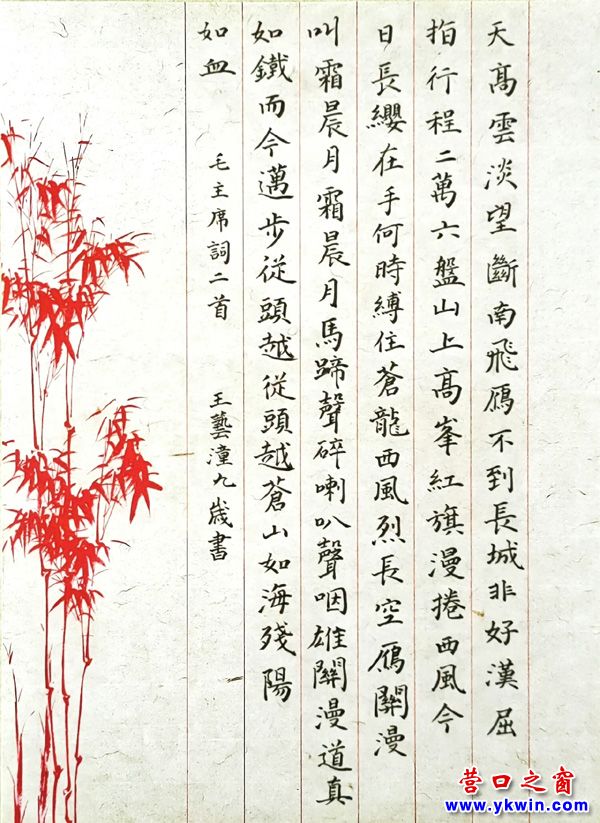 天高雲淡望斷南飛鴈不到長城非好漢屈
指行程二萬六盤山上高峯紅旗漫捲西風今
日長纓在手何時縛住蒼龍西風烈長空鴈關漫
叫霜晨月霜晨月馬蹄聲碎喇叭聲咽雄關漫道真
如鐵而今邁步從頭越從頭越蒼山如海殘陽
如血 毛主席詞二首 王藝潼九歲書
营口之窗
www.ykwin.com